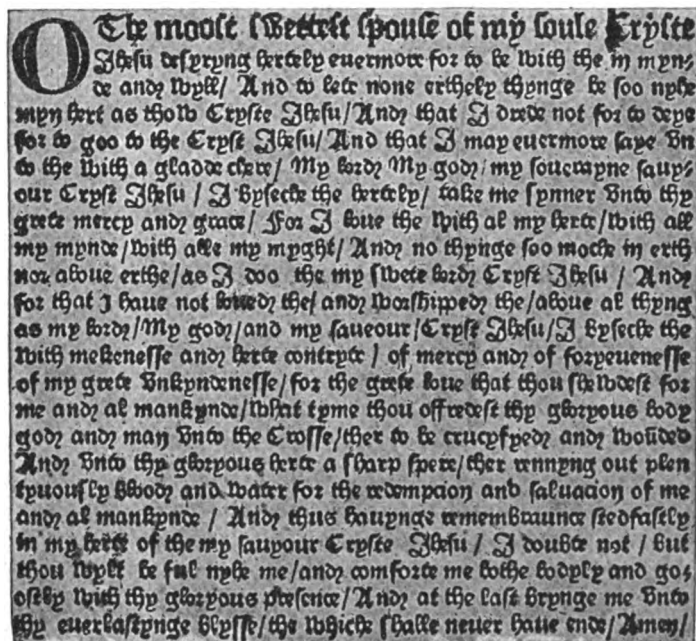 O The moost swettest spouse of my soule Cryste
Jhesu desyryng hertely euermore for to be with the in myn-
de and wyll/ And to lete none erthely thynge be soo nyhe
myn hert as thow Cryste Jhesu/ And that I drede not for to deye
for to goo to the Cryst Jhesu/ And that I may euermore saye vn
to the with a gladde chere/ My lord My god/ my souerayne sauy-
our Cryst Jhesu / I byseche the hertely/ take me synner vnto thy
grete mercy and grace/ For I loue the with al my herte/ with all
my mynde/ with alle my myght/ And no thynge soo moche in erth
nor aboue erthe/ as I doo the my swete lord Cryst Jhesu / And
for that I haue not loued the/ and worshipped the/ aboue al thyng
as my lord/ My god/ and my saueour/ Cryst Jhesu/ I byseche the
with mekenesse and herte contryte / of mercy and of foryeuenesse
of my grete vnkyndenesse/ for the grete loue that thou shewdest for
me and al mankynde/ what tyme thou offredest thy gloryous body
god and man vnto the Crosse/ ther to be crucyfyed and woūded
And vnto thy gloryous herte a sharp spere/ ther rennyng out plen
tyuously blood and water for the redempcion and saluacion of me
and al mankynde / And thus hauynge remembraunce stedfastly
in my herte of the my sauyour Cryste Jhesu / I doubte not / but
thou wylt be ful nyhe me/ and comforte me bothe bodyly and go-
ostly with thy gloryous presence/ And at the last brynge me vnto
thy euerlastynge blysse/ the whiche shalle neuer haue ende/ Amen/